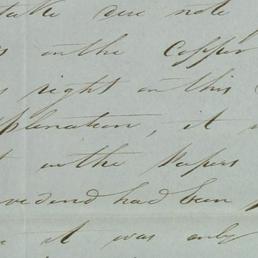 take one note
in the Copper
right on this
explanation, it
in the Papers
dividend had been
it was only